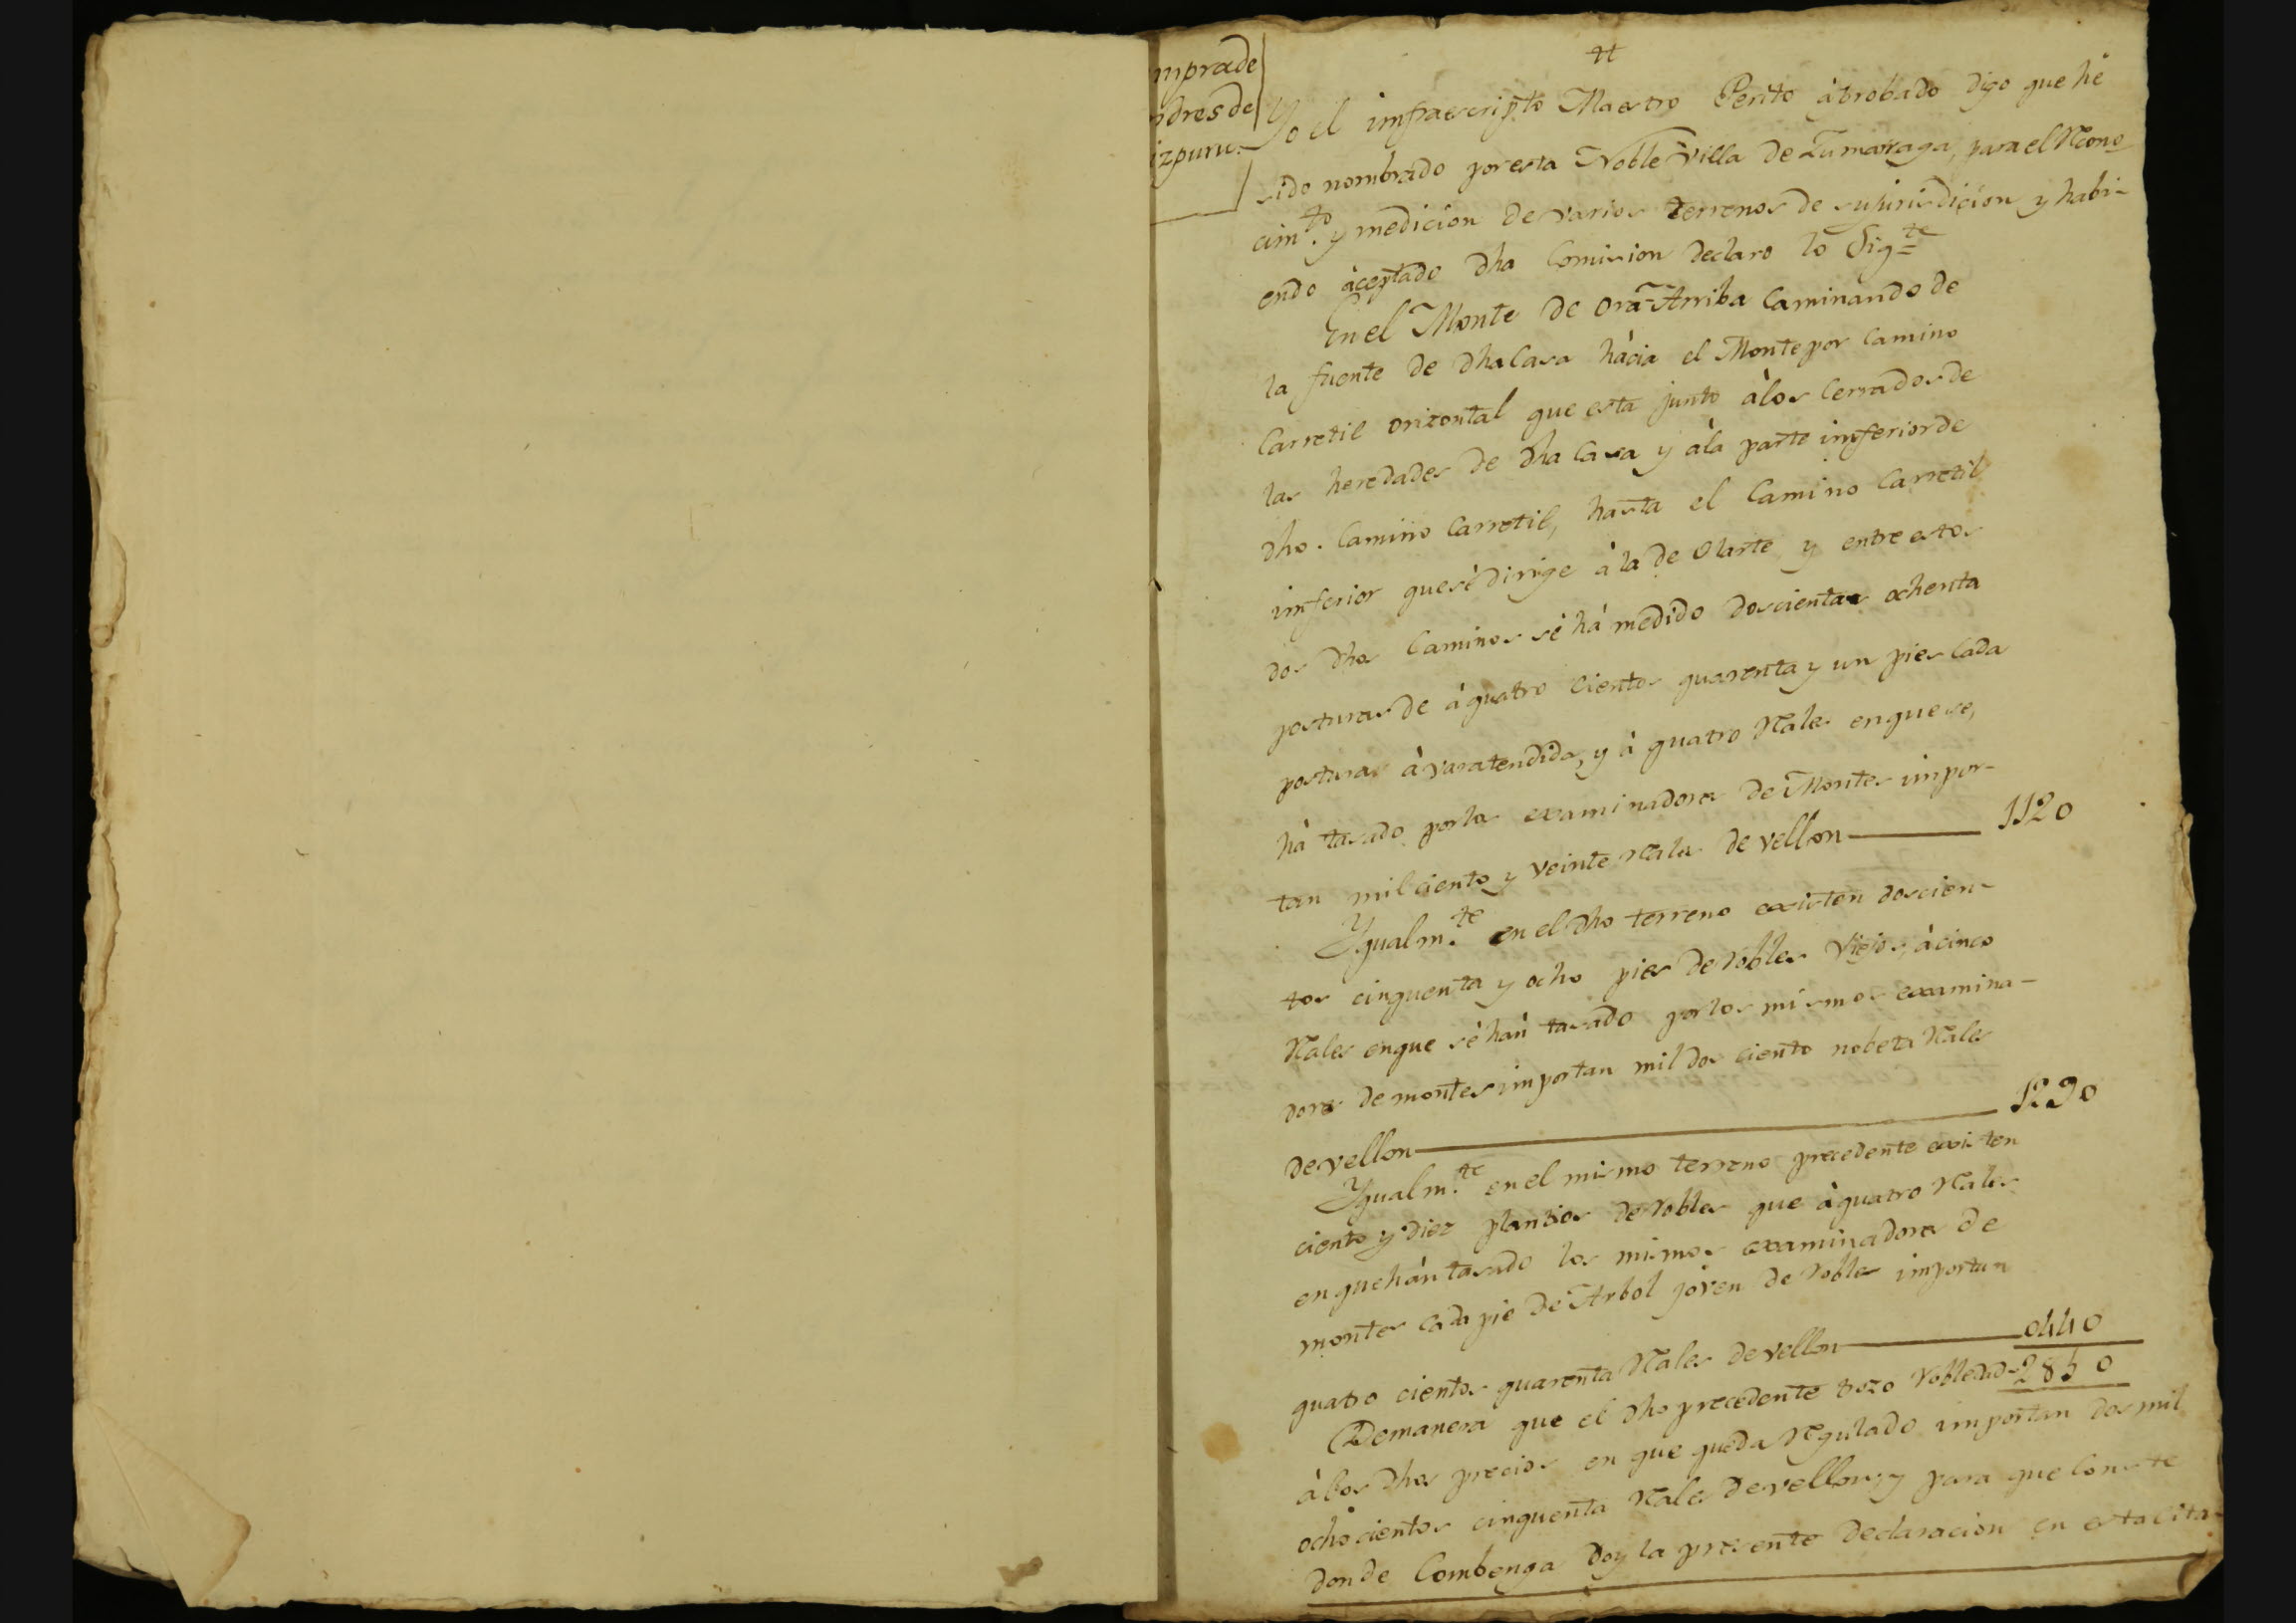 mprade
ndresde
izpuru.
Yo el imfraescripto Maestro Perito àprobado digo que hè
sido nombrado por esta Noble Villa de Zumarraga, para el Recono
cim.to y medicion de varios terrenos de su jurisdicion y habi-
endo àceptado dha Comision declaro lo Sig.te
En el Monte de Ora-Arriba Caminando de
la fuente de dha Casa hàcia el Monte por Camino
Carretil orizontal que esta junto àlos Cerrados de
las heredades de dha Casa y àla parte imferior de
dho. Camino Carretil, hasta el Camino Carretil
imferior que sè dirige à la de Olarte, y entre estos
dos dhos Caminos sè hà medido doscientas ochenta
posturas de à quatro cientos quarenta y un pies Cada
posturas à vara tendida, y à quatro Rales en que se,
hà tasado por los examinadores de Montes impor-
tan mil ciento y veinte Rales de vellon 1120
Ygualm.te en el dho terreno existen doscien-
tos cinquenta y ocho pies de robles Viejos, à cinco
Rales en que sè hàn tasado por los mismos examina-
dores de montes importan mil dos ciento nobeta Rales
de vellon 1290
Ygualm.te en el mismo terreno precedente existen
ciento y diez plantios de robles que à quatro Rales
en que hàn tasado los mismos examinadores de
montes cada pie de Arbol jòven de robles importan
quatro cientos quarenta Rales de vellon 0440
Demanera que el dho precedente trozo robledad 2850
à los dhos precios en que queda Regulado importan dos mil
ocho cientos cinquenta Rales de vellon; y para que Conste
donde Combenga doy la presente declaracion en esta cita-